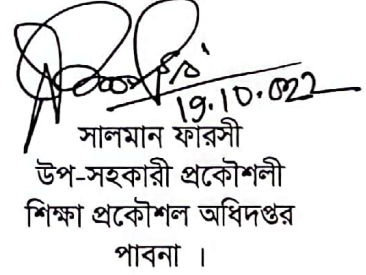 19.10.022
সালমান ফারসী
উপ-সহকারী প্রকৌশলী
শিক্ষা প্রকৌশল অধিদপ্তর
পাবনা ।